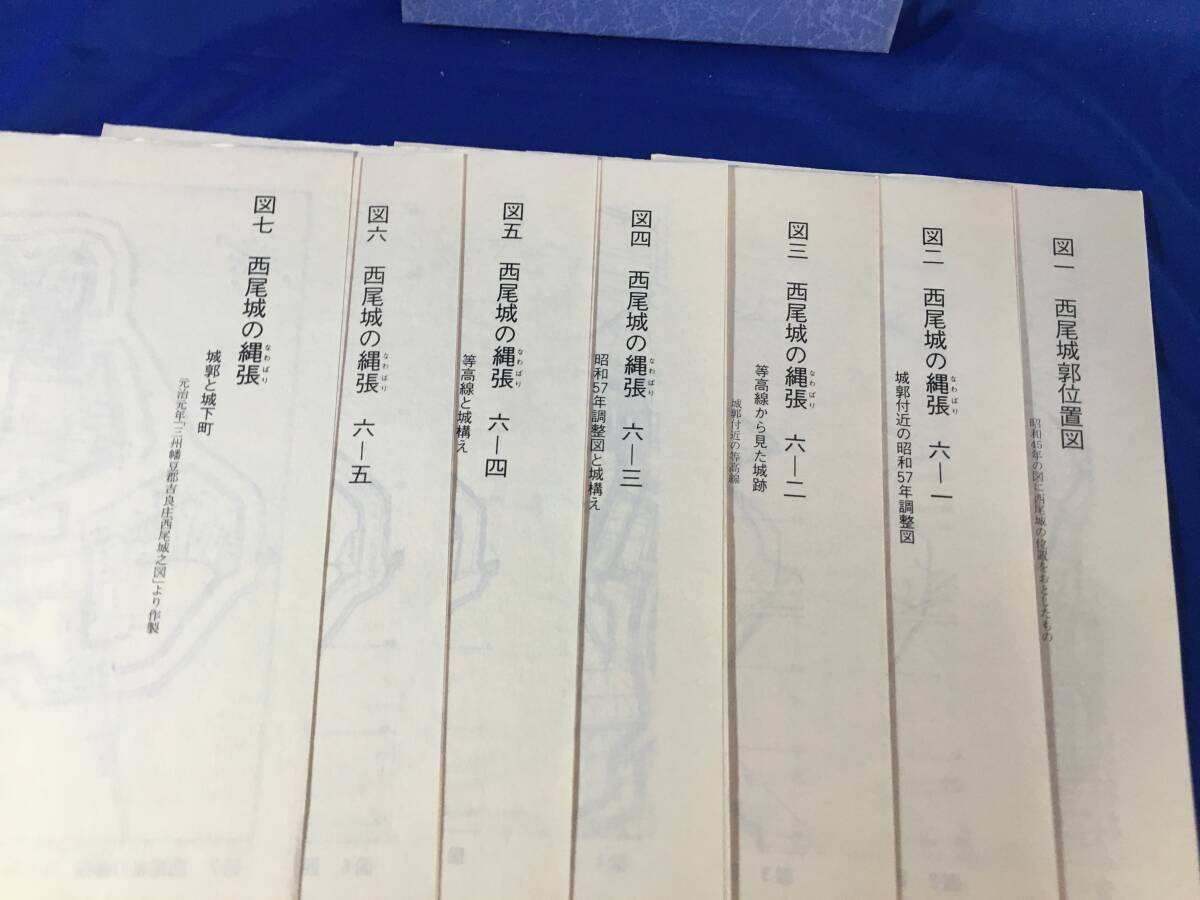 図一　西尾城郭位置図
昭和45年の図に西尾城の位置をおとしたもの
図二　西尾城の縄張　六―一
なわばり
城郭付近の昭和57年調整図
図三　西尾城の縄張　六―二
なわばり
等高線から見た城跡
城郭付近の等高線
図四　西尾城の縄張　六―三
なわばり
昭和57年調整図と城構え
図五　西尾城の縄張　六―四
なわばり
等高線と城構え
図六　西尾城の縄張　六―五
なわばり
図七　西尾城の縄張
なわばり
城郭と城下町
元治元年「三州幡豆郡吉良庄西尾城之図」より作製